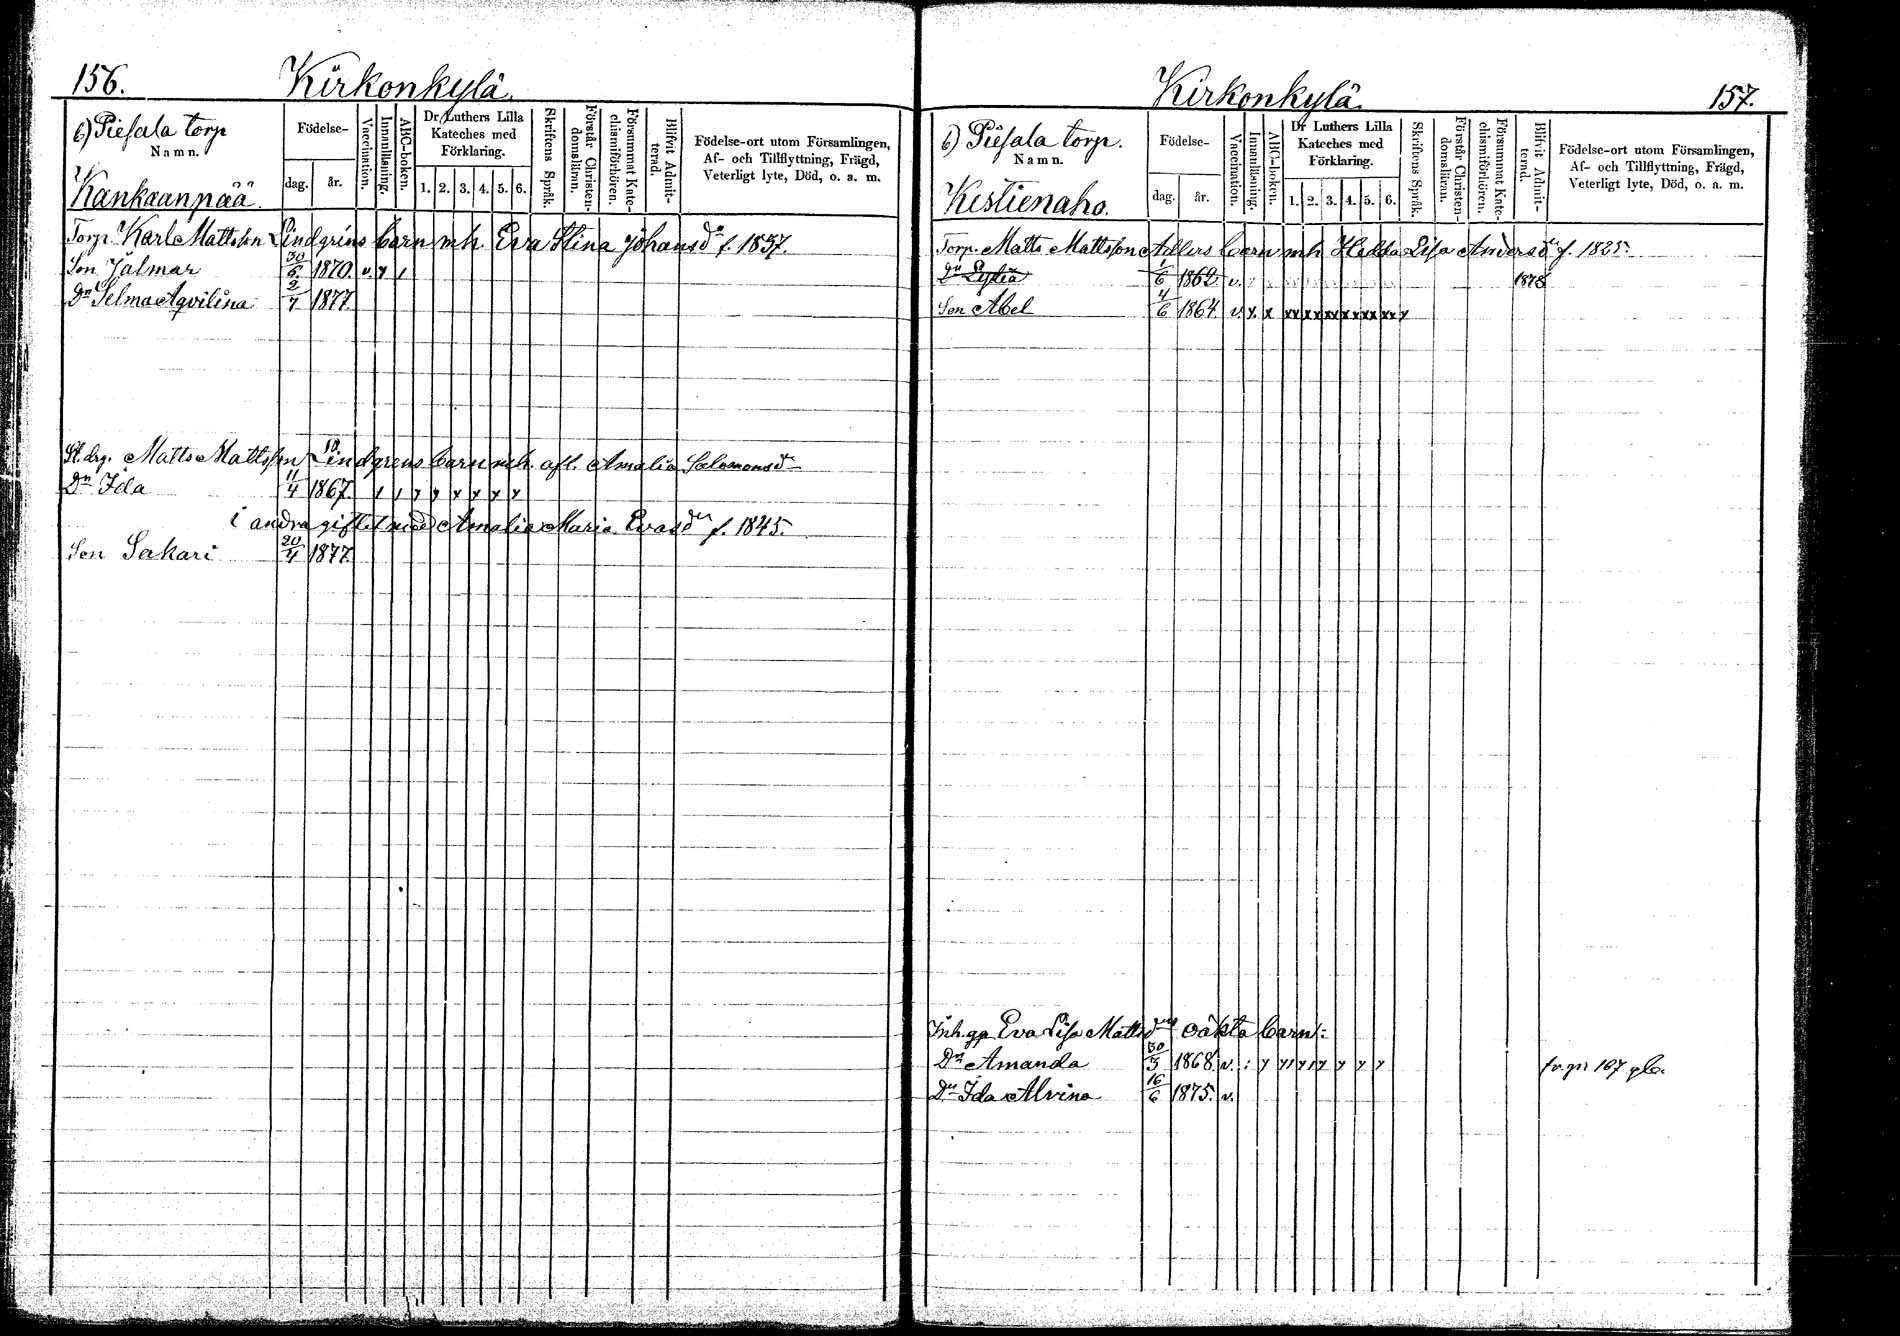 156.
Kirkonkylä.
6) Piesala torp
Namn.
Kankaanpää.
Födelse-
dag.
år.
Vaccination.
Innanläsning.
ABC-boken.
Dr Luthers Lilla
Kateches med
Förklaring.
1. 2. 3. 4. 5. 6.
Skriftens Språk.
Förstår Christen-
domsläran.
Försummat Kate-
chismiförhören.
Blifvit Admit-
terad.
Födelse-ort utom Församlingen,
Af- och Tillflyttning, Frägd,
Veterligt lyte, Död, o. a. m.
Torp. Karl Mattsson Lindgrens barn mh. Eva Stina Johansdr f. 1837.
Son Jalmar 30/6 1870. v. y 1
Dn Selma Aqvilina 2/7 1877.
Matts Mattsson Lindgrens barn mh. afl. Amalia Salomonsdr
Dn Ida 11/4 1867. 1 1 y y x x x x
i andra giftet med Amalia Maria Evasdr f. 1845.
Son Sakari 20/4 1877.
Kirkonkylä.
157.
6) Piesala torp.
Namn.
Kestienaho.
Födelse-
dag.
år.
Vaccination.
Innanläsning.
ABC-boken.
Dr Luthers Lilla
Kateches med
Förklaring.
1. 2. 3. 4. 5. 6.
Skriftens Språk.
Förstår Christen-
domsläran.
Försummat Kate-
chismiförhören.
Blifvit Admit-
terad.
Födelse-ort utom Församlingen,
Af- och Tillflyttning, Frägd,
Veterligt lyte, Död, o. a. m.
Torp. Matts Mattsson Adlers barn mh Hedda Lisa Andersdr f. 1825.
Dn Lydia 1/6 1862. v. 1878
Son Abel 4/6 1864. v. x. x xx xx xx xx xx xx x
Inh. gp Eva Lisa Mattsdrs oäkta barn:
Dn Amanda 30/3 1868. v. : y y1 y 1y y y y
Dn Ida Alvina 16/6 1875. v.